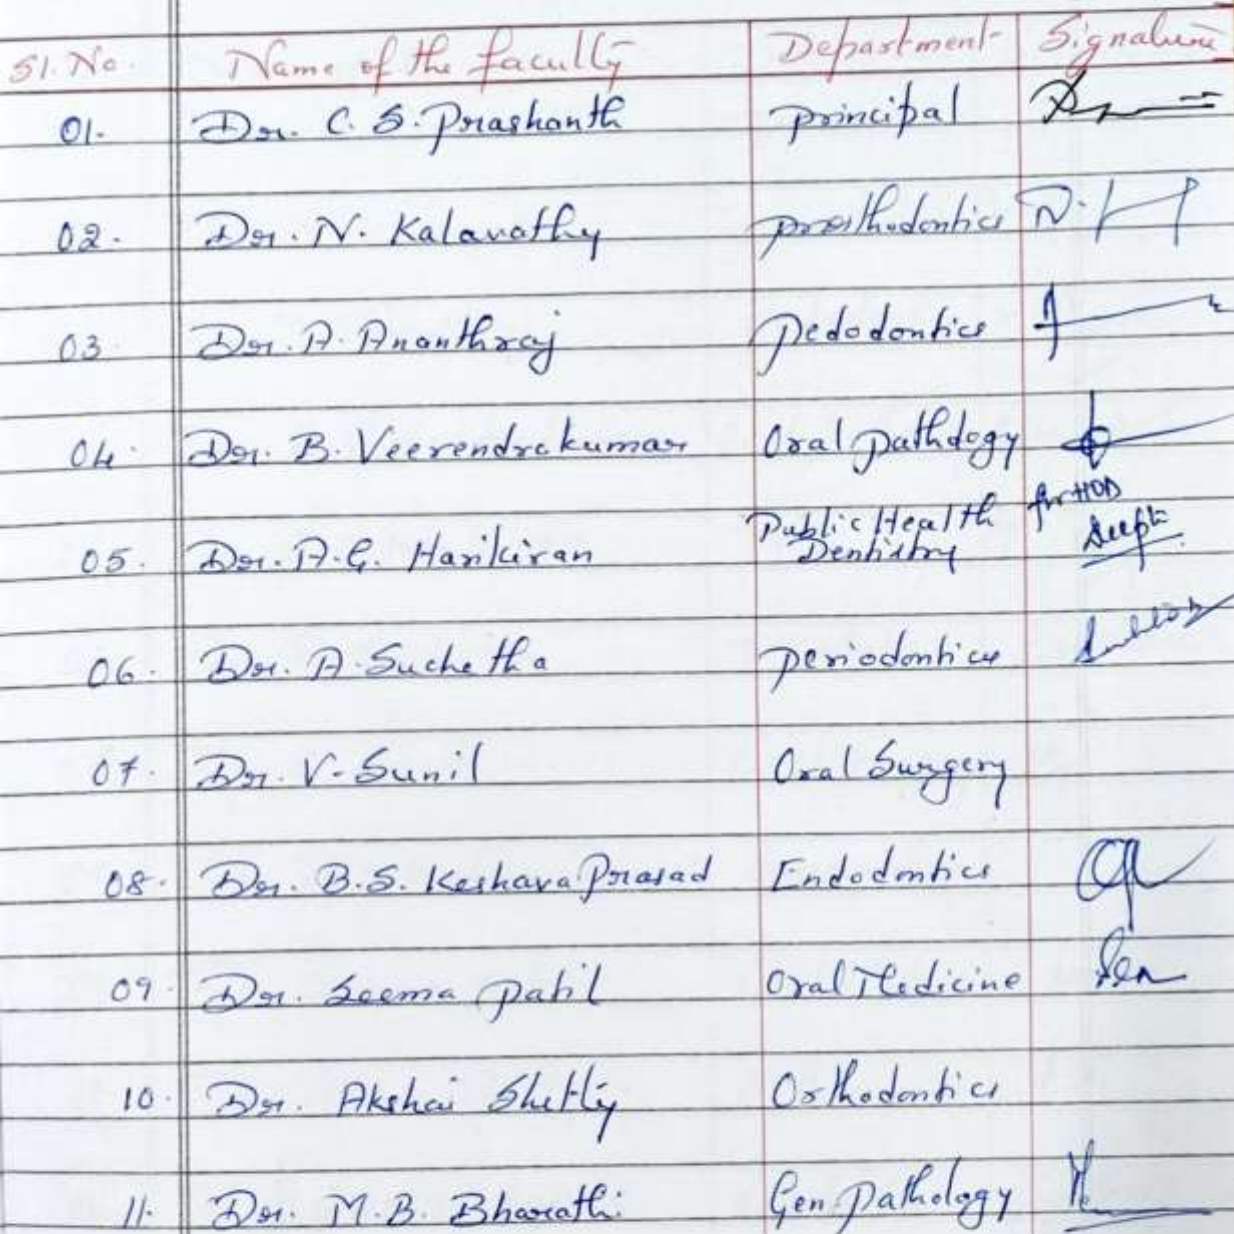 Sl. No. Name of the faculty Department Signature
01. Dr. C. S. Prashanth principal
02. Dr. N. Kalavathy prosthodontics
03 Dr. A. Ananthraj pedodontics
04. Dr. B. Veerendrakumar Oral pathology
05. Dr. A. G. Harikiran Public Health Dentistry for HOD Deepti
06. Dr. A. Suchetha periodontics
07. Dr. V. Sunil Oral Surgery
08. Dr. B. S. Keshava Prasad Endodontics
09 Dr. Seema patil Oral Medicine
10. Dr. Akshai Shetty Orthodontics
11. Dr. M. B. Bharathi Gen. pathology